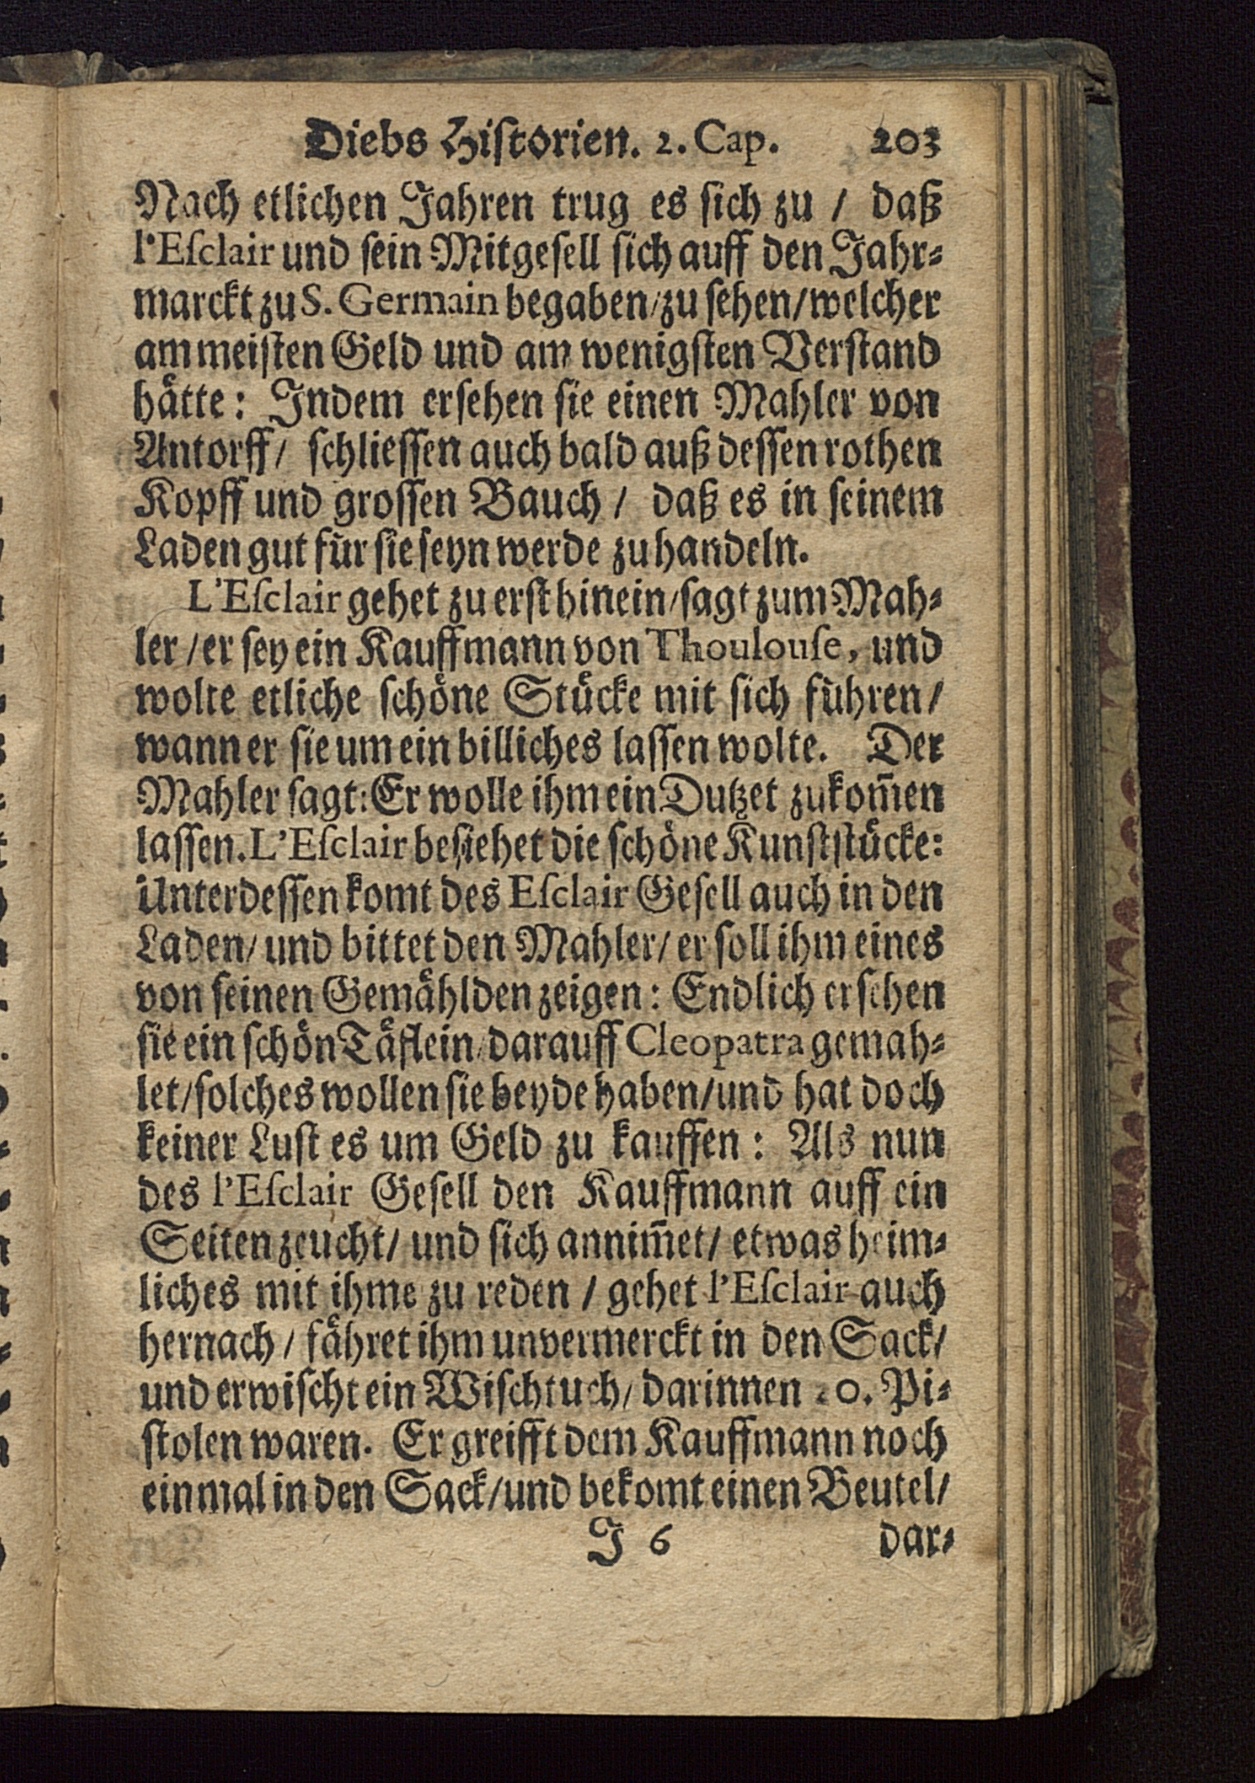 Diebs Historien. 2. Cap. 203
Nach etlichen Jahren trug es sich zu / daß
l'Esclair und sein Mitgesell sich auff den Jahr-
marckt zu S. Germain begaben / zu sehen / welcher
am meisten Geld und am wenigsten Verstand
haͤtte: Indem ersehen sie einen Mahler von
Antorff / schliessen auch bald auß dessen rothen
Kopff und grossen Bauch / daß es in seinem
Laden gut fuͤr sie seyn werde zu handeln.
L'Esclair gehet zu erst hinein / sagt zum Mah-
ler / er sey ein Kauffmann von Thoulouse, und
wolte etliche schoͤne Stuͤcke mit sich fuͤhren /
wann er sie um ein billiches lassen wolte. Der
Mahler sagt: Er wolle ihm ein Dutzet zukom̃en
lassen. L'Esclair besiehet die schoͤne Kunststuͤcke:
Unterdessen komt des Esclair Gesell auch in den
Laden / und bittet den Mahler / er soll ihm eines
von seinen Gemaͤhlden zeigen: Endlich ersehen
sie ein schoͤn Taͤflein / darauff Cleopatra gemah-
let / solches wollen sie beyde haben / und hat doch
keiner Lust es um Geld zu kauffen: Als nun
des l'Esclair Gesell den Kauffmann auff ein
Seiten zeucht / und sich annim̃et / etwas heim-
liches mit ihme zu reden / gehet l'Esclair auch
hernach / faͤhret ihm unvermerckt in den Sack /
und erwischt ein Wischtuch / darinnen Pi-
stolen waren. Er greifft dem Kauffmann noch
einmal in den Sack / und bekomt einen Beutel /
J 6 dar-